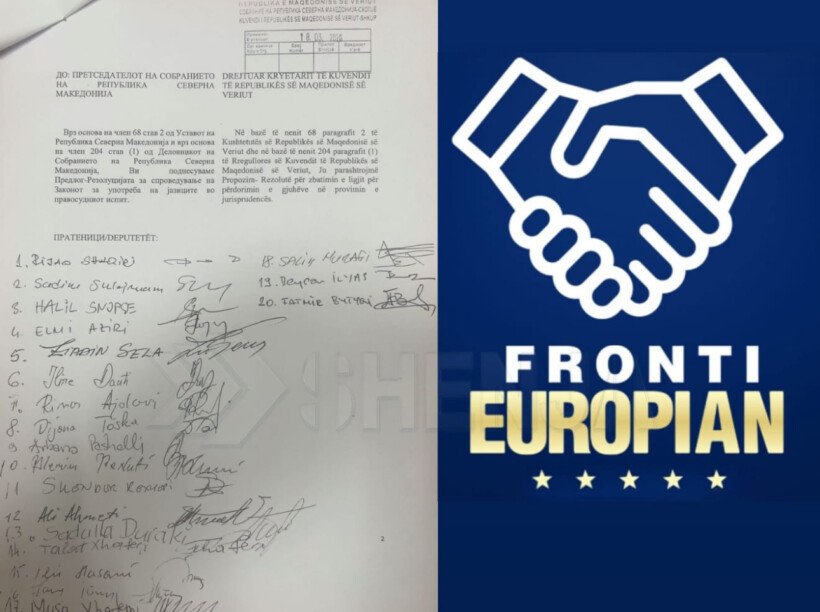 REPUBLIKA E MAQEDONISË SË VERIUT
СОБРАНИЕ НА РЕПУБЛИКА СЕВЕРНА МАКЕДОНИЈА-СКОПЈЕ
KUVENDI I REPUBLIKËS SË MAQEDONISË SË VERIUT-SHKUP
18.03.
ДО: ПРЕТСЕДАТЕЛОТ НА СОБРАНИЕТО
НА РЕПУБЛИКА СЕВЕРНА
МАКЕДОНИЈА
DREJTUAR KRYETARIT TË KUVENDIT
TË REPUBLIKËS SË MAQEDONISË SË
VERIUT
Врз основа на член 68 став 2 од Уставот на
Република Северна Македонија и врз основа
на член 204 став (1) од Деловникот на
Собранието на Република Северна
Македонија, Ви поднесуваме
Предлог-Резолуцијата за спроведување на
Законот за употреба на јазиците во
правосудниот испит.
Në bazë të nenit 68 paragrafi 2 të
Kushtetutës së Republikës së Maqedonisë së
Veriut dhe në bazë të nenit 204 paragrafi (1)
të Rregullores së Kuvendit të Republikës së
Maqedonisë së Veriut, Ju parashtrojmë
Propozim- Rezolutë për zbatimin e ligjit për
përdorimin e gjuhëve në provimin e
jurisprudencës.
ПРАТЕНИЦИ/DEPUTETËT:
1.
2. Sadije Sulejmani
3. HALIL SNOPÇE
4. ELMI AZIRI
5. ZIADIN SELA
6. Ilire Dauti
7.
8. Dijana Toska
9. Arbana Pasholli
10.
11
12 Ali Ahmeti
13. Sadulla Duraki
14. Talat Xhaferi
15. Ilir Hasani
16
17. Musa Xhaferi
18. SALIH MURATI
19. ILYAS
20. TATMIR BYTYQI
2
SHENJA
FRONTI
EUROPIAN